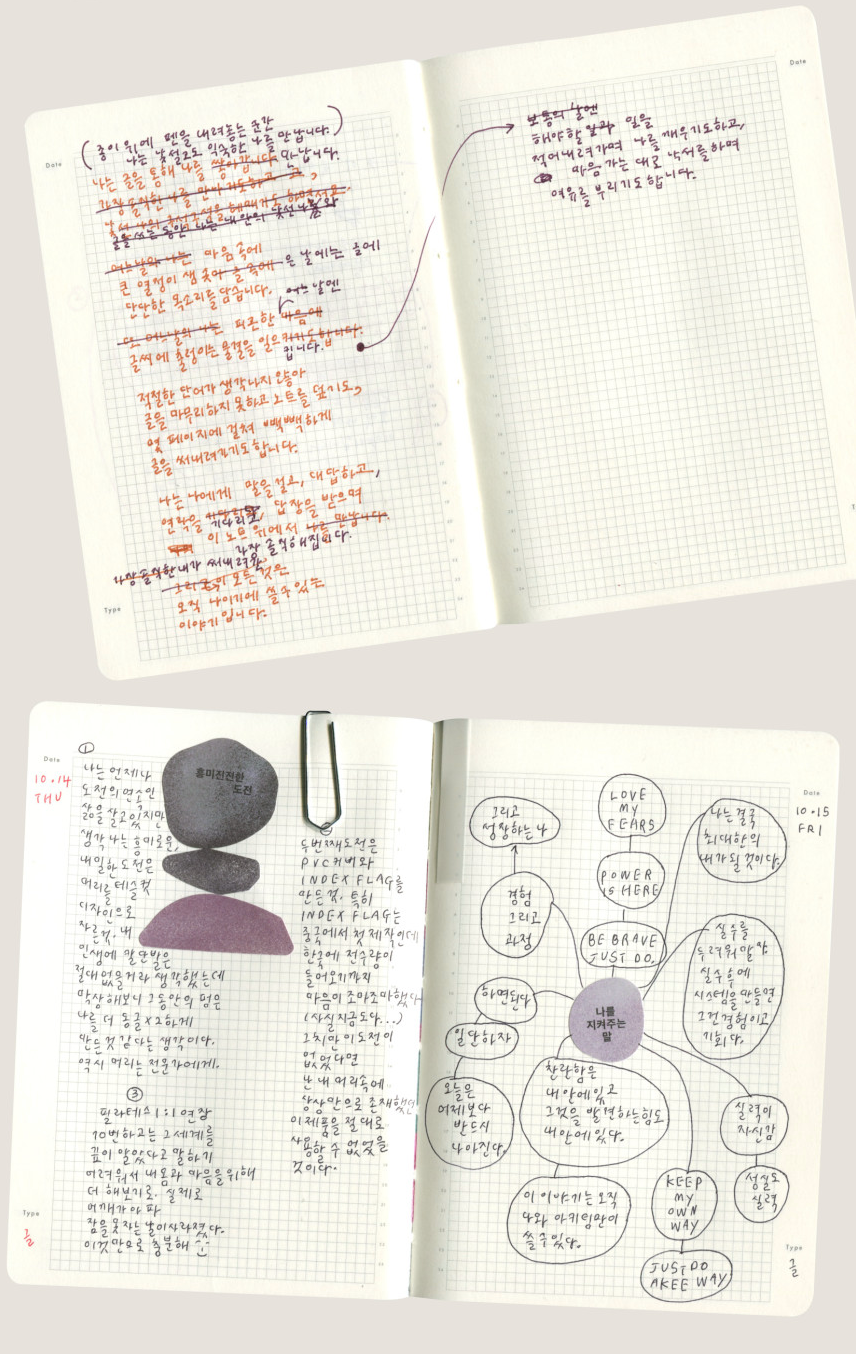 Date
( 종이 위에 펜을 내려놓는 순간
나는 낯설고도 익숙한 나를 만납니다. )
나는 글을 통해 나를 쌓아갑니다. 만납니다.
가장 솔직한 나를 만나기도하고
글을 쓰는 동안 나는 내 안의 낯선
어느날의 나는 마음 곡에
큰 열정이 샘 솟아 글 속에 은 날에는 글에
단단한 목소리를 담습니다.
어느 날엔
또 어느날의 나는 피곤한 마음에
글씨에 출렁이는 물결을 일으키기도합니다.
킵니다.
적절한 단어가 생각나지 않아
글을 마무리하지 못하고 노트를 덮기도,
몇 페이지에 걸쳐 빽빽하게
글을 써내려가기도 합니다.
나는 나에게 말을 걸고, 대답하고,
연락을 기다리고, 답장을 받으며
이 노트 위에서 나를 만납니다.
가장 솔직해집니다.
가장솔직한 내가 써내려와
그리고 이 모든 것은
오직 나이기에 쓸 수 있는
이야기 입니다.
Type
Date
보통의 날엔
해야할 일과 일을
적어내려가며 나를 깨우기도하고,
마음 가는 대로 낙서를하며
여유를 부리기도합니다.
Date
10.14
THU
①
나는 언제나
도전의 연속인
삶을 살고있지만
생각나는 흥미로운,
내일한 도전은
머리를 테슬컷
디자인으로
자른것. 내
인생에 말단발은
절대 없을거라 생각했는데
막상 해보니 그동안의 펌은
나를 더 동글x2하게
만든것 같다는 생각이다.
역시 머리는 전문가에게.
흥미진진한
도전
③
필라테스 1:1 연장
10번하고는 그 세계를
깊이 알았다고 말하기
어려워서 내 몸과 마음을위해
더 해보기로. 실제로
어깨가 아파
잠을못자는 날이사라졌다.
이것만으로 충분해
②
두번째도전은
PVC커버와
INDEX FLAG를
만든것. 특히
INDEX FLAG는
중국에서 첫 제작인데
한국에 전수량이
들어오기까지
마음이 조마조마했다
(사실 지금도다...)
그치만 이 도전이
없었다면
난 내 머리속에
상상만으로 존재했던
이 제품을 절대로
사용할 수 없었을
것이다.
Type
글
Date
10.15
FRI
그리고
성장하는 나
경험
그리고
과정
LOVE
MY
FEARS
POWER
IS HERE
BE BRAVE
JUST DO.
나는 결국
최대한의
내가 될 것이다.
실수를
두려워 말 것.
실수 후에
시스템을 만들면
그건 경험이고
기회다.
나를
지켜주는
말
하면된다
일단하자
오늘은
어제보다
반드시
나아진다.
찬란함은
내 안에있고
그것을 발견하는힘도
내 안에 있다.
이 이야기는 오직
나와 아키임만이
쓸 수 있다.
KEEP
MY
OWN
WAY
JUST DO
AKEE WAY
실력이
자신감
성실도
실력
Type
글